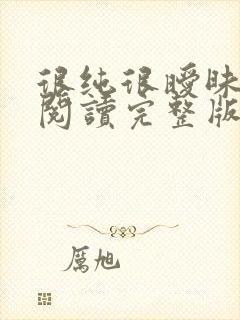 很純很曖昧
閱讀完整版
厲旭